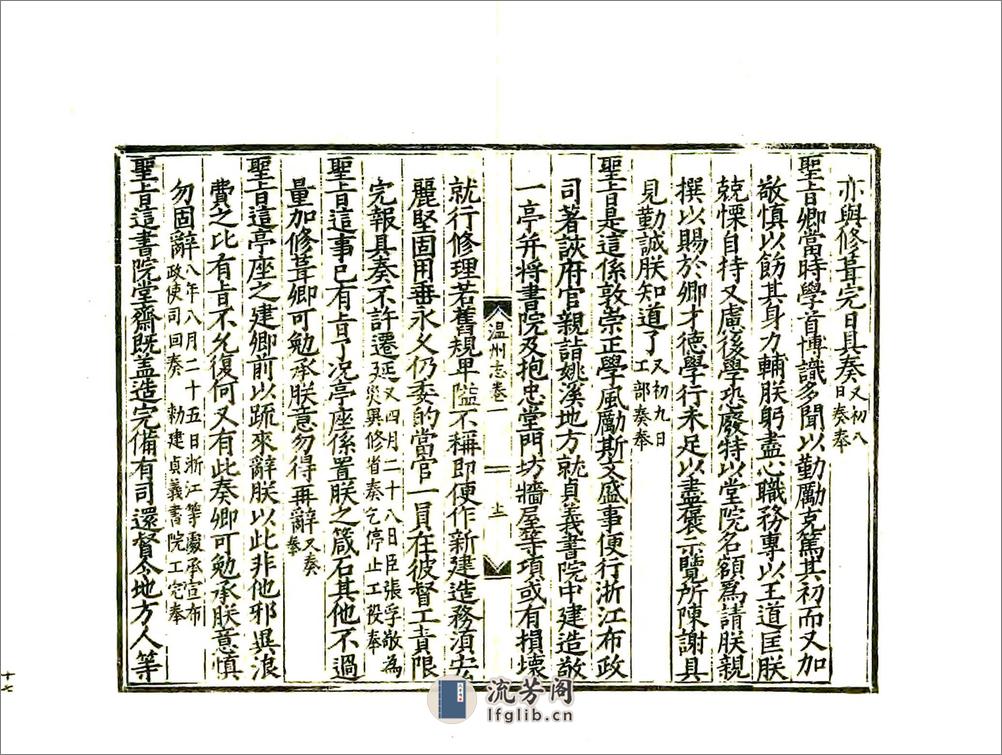 亦與修葺完日具奏又初八日奏奉
聖旨卿當時學首博識多聞以勤勵克篤其初而又加
敬慎以飭其身力輔朕躬盡心職務專以王道匡朕
兢慄自持又慮後學恐廢特以堂院名額爲請朕親
撰以賜於卿才德學行未足以盡褒示覽所陳謝具
見勤誠朕知道了又初九日工部奏奉
聖旨是這係敦崇正學風勵斯文盛事便行浙江布政
司著該府官親詣姚溪地方就貞義書院中建造敬
一亭并將書院及抱忠堂門坊牆屋等項或有損壞
溫州志卷一
十
就行修理若舊規卑隘不稱即便作新建造務須宏
麗堅固用垂永久仍委的當官一員在彼督工責限
完報具奏不許遷延又四月二十八日臣張孚敬為災異修省奏乞停止工役奉
聖旨這事已有旨了况亭座係置朕之箴石其他不過
量加修葺卿可勉承朕意勿得再辭又奏奉
聖旨這亭座之建卿前以疏來辭朕以此非他邪異浪
費之比有旨不允復何又有此奏卿可勉承朕意慎
勿固辭八年八月二十五日浙江等處承宣布政使司回奏 勑建貞義書院工完奉
聖旨這書院堂齋既蓋造完備有司還督令地方人等
十七
流芳阁
lfglib.cn